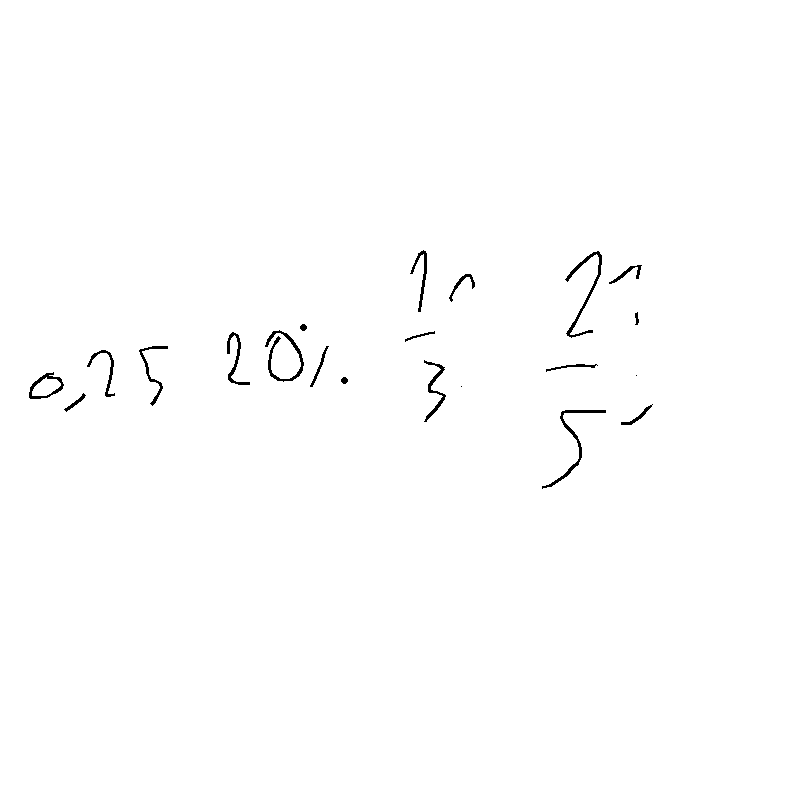 0,25 20% 1/3 2/5